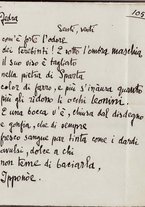 Fedra
105
Senti, senti
com'è forte l'odore
dei terebinti! E sotto l'ombra maschia
il suo viso è tagliato
nella pietra di Sparta
color di farro, e più s'indura quanto
più gli ridono le occhi leonini.
E una bocca v'è, chiusa dal disdegno
e gonfia, che di sempre
fresco sangue par tinta come i dardi
avulsi, dolce a chi
non teme di baciarla,
Ippònoe.